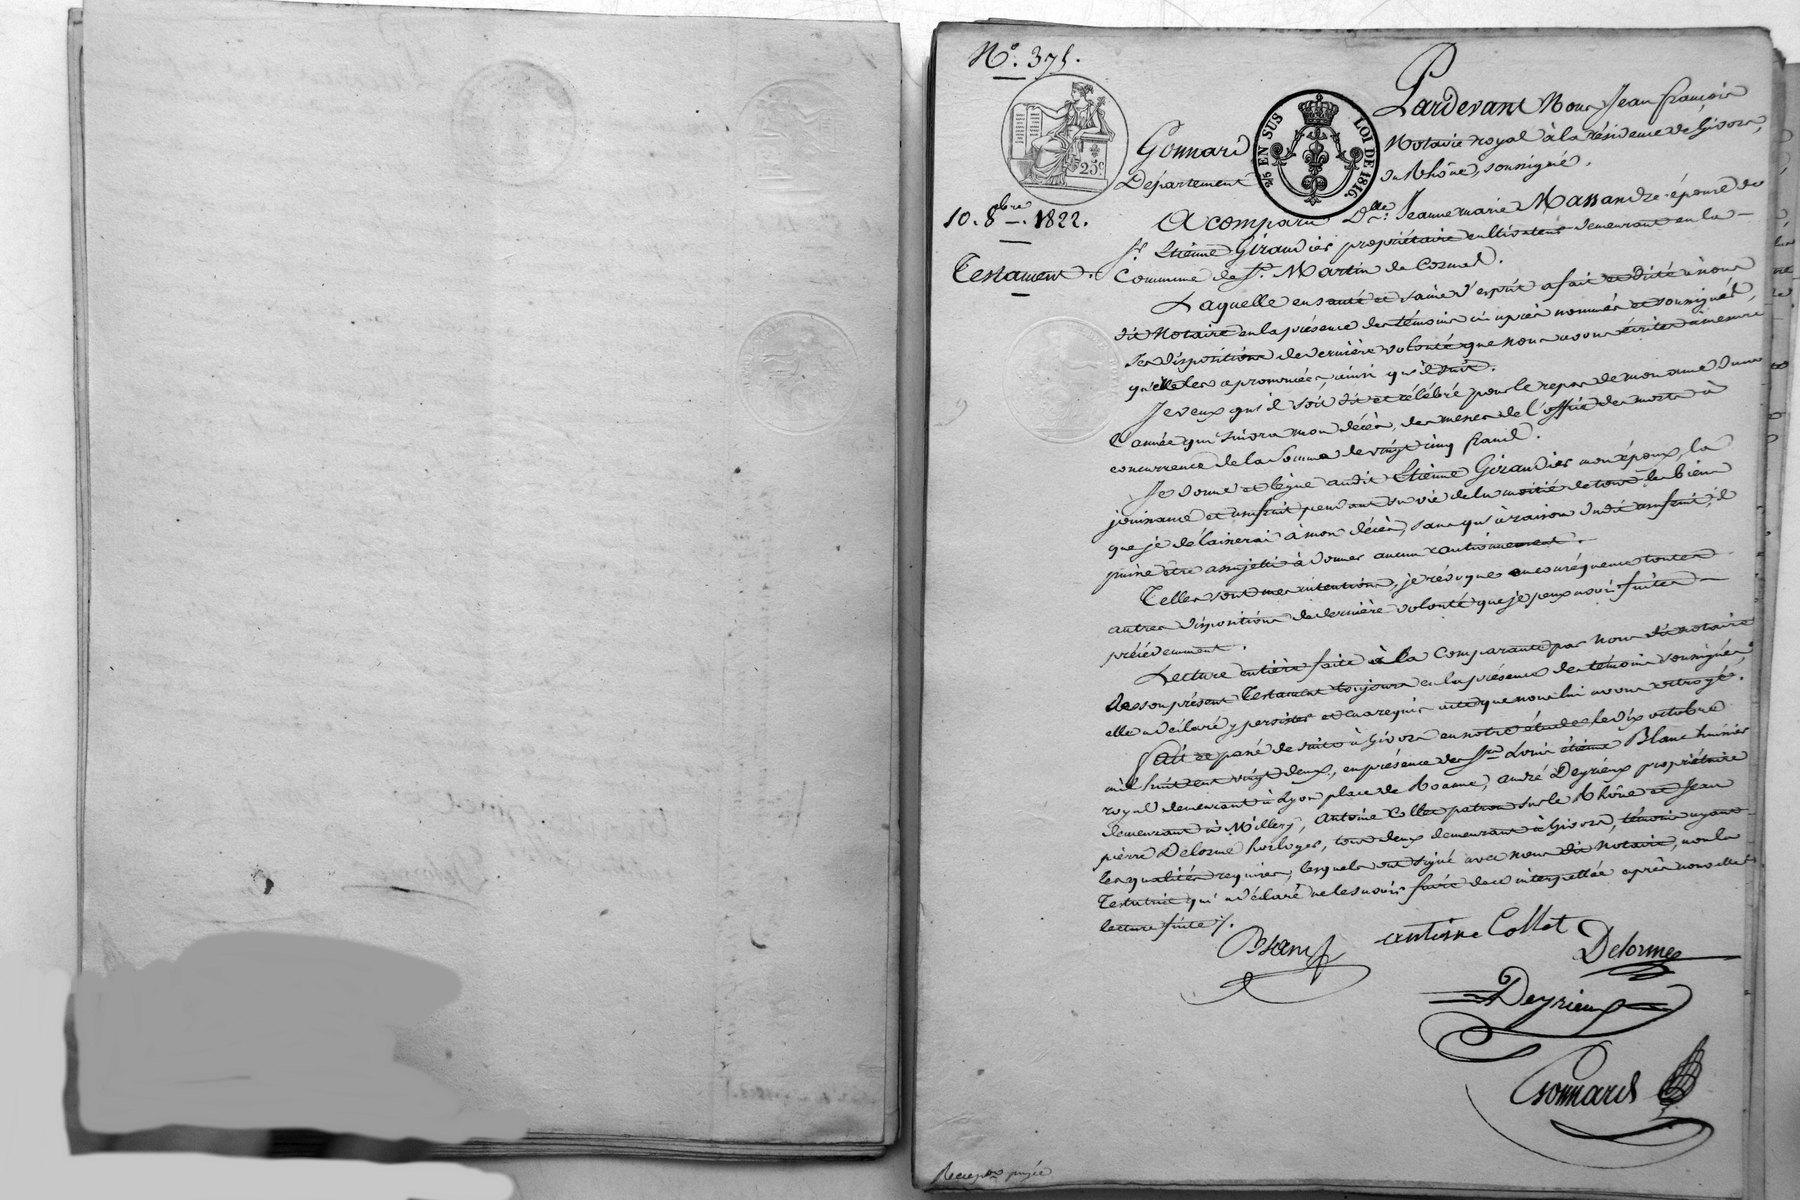 N.° 375.
25.c
2/6 EN SUS LOI DE 1816.
Pardevant Nous Jean françois
Gonnard Notaire royal à la résidence de Givors,
Departement du Rhône, soussigné.
10. 8bre. 1822.
A comparu Dlle. Jeanne marie Massandre épouse de
Sr. Etienne Giraudier propriétaire cultivateur demeurant en la
Testament. Commune de St. Martin de Cornas.
Laquelle en santé et saine d'esprit a fait et dicté à nous
dit Notaire en la présence des témoins ci après nommés et soussignés,
ses dispositions de dernière volonté que nous avons écrites à mesure
qu'elle les a prononcées, ainsi qu'il suit.
Je veux qu'il soit dit et célébré pour le repos de mon ame dans
l'année qui suivra mon décès, des messes de l'office des morts à
concurrence de la somme de vingt cinq francs.
Je donne et lègue audit Etienne Giraudier mon époux, la
jouissance et usufruit pendant sa vie de la moitié de tous les biens
que je délaisserai à mon décès, sans qu'à raison dudit usufruit, il
puisse être assujetti à donner aucun cautionnement.
Telles sont mes intentions, je révoque en conséquence toutes
autres dispositions de dernière volonté que je peux avoir faites
précédemment.
Lecture entière faite à la Comparante par nous dit notaire
de son présent Testament toujours en la présence des témoins soussignés
elle a déclaré y persister et en a requis acte que nous lui avons octroyé.
Fait et passé de suite à Givors en notre étude le dix octobre
mil huit cent vingt deux, en présence de Srs. Louis étienne Blanc huissier
royal demeurant à Lyon place de Roanne, andré Deyrieux propriétaire
demeurant à Millery, Antoine Collet patron sur le Rhône et Jean
pierre Delorme horloger, tous deux demeurant à Givors, témoins ayant
les qualités requises, lesquels ont signé avec nous dit notaire, non la
Testatrice qui a déclaré ne le savoir faire de ce interpellée après nouvelle
lecture faite ./.
Blanc
antoine Collet
Delorme
Deyrieux
Gonnard